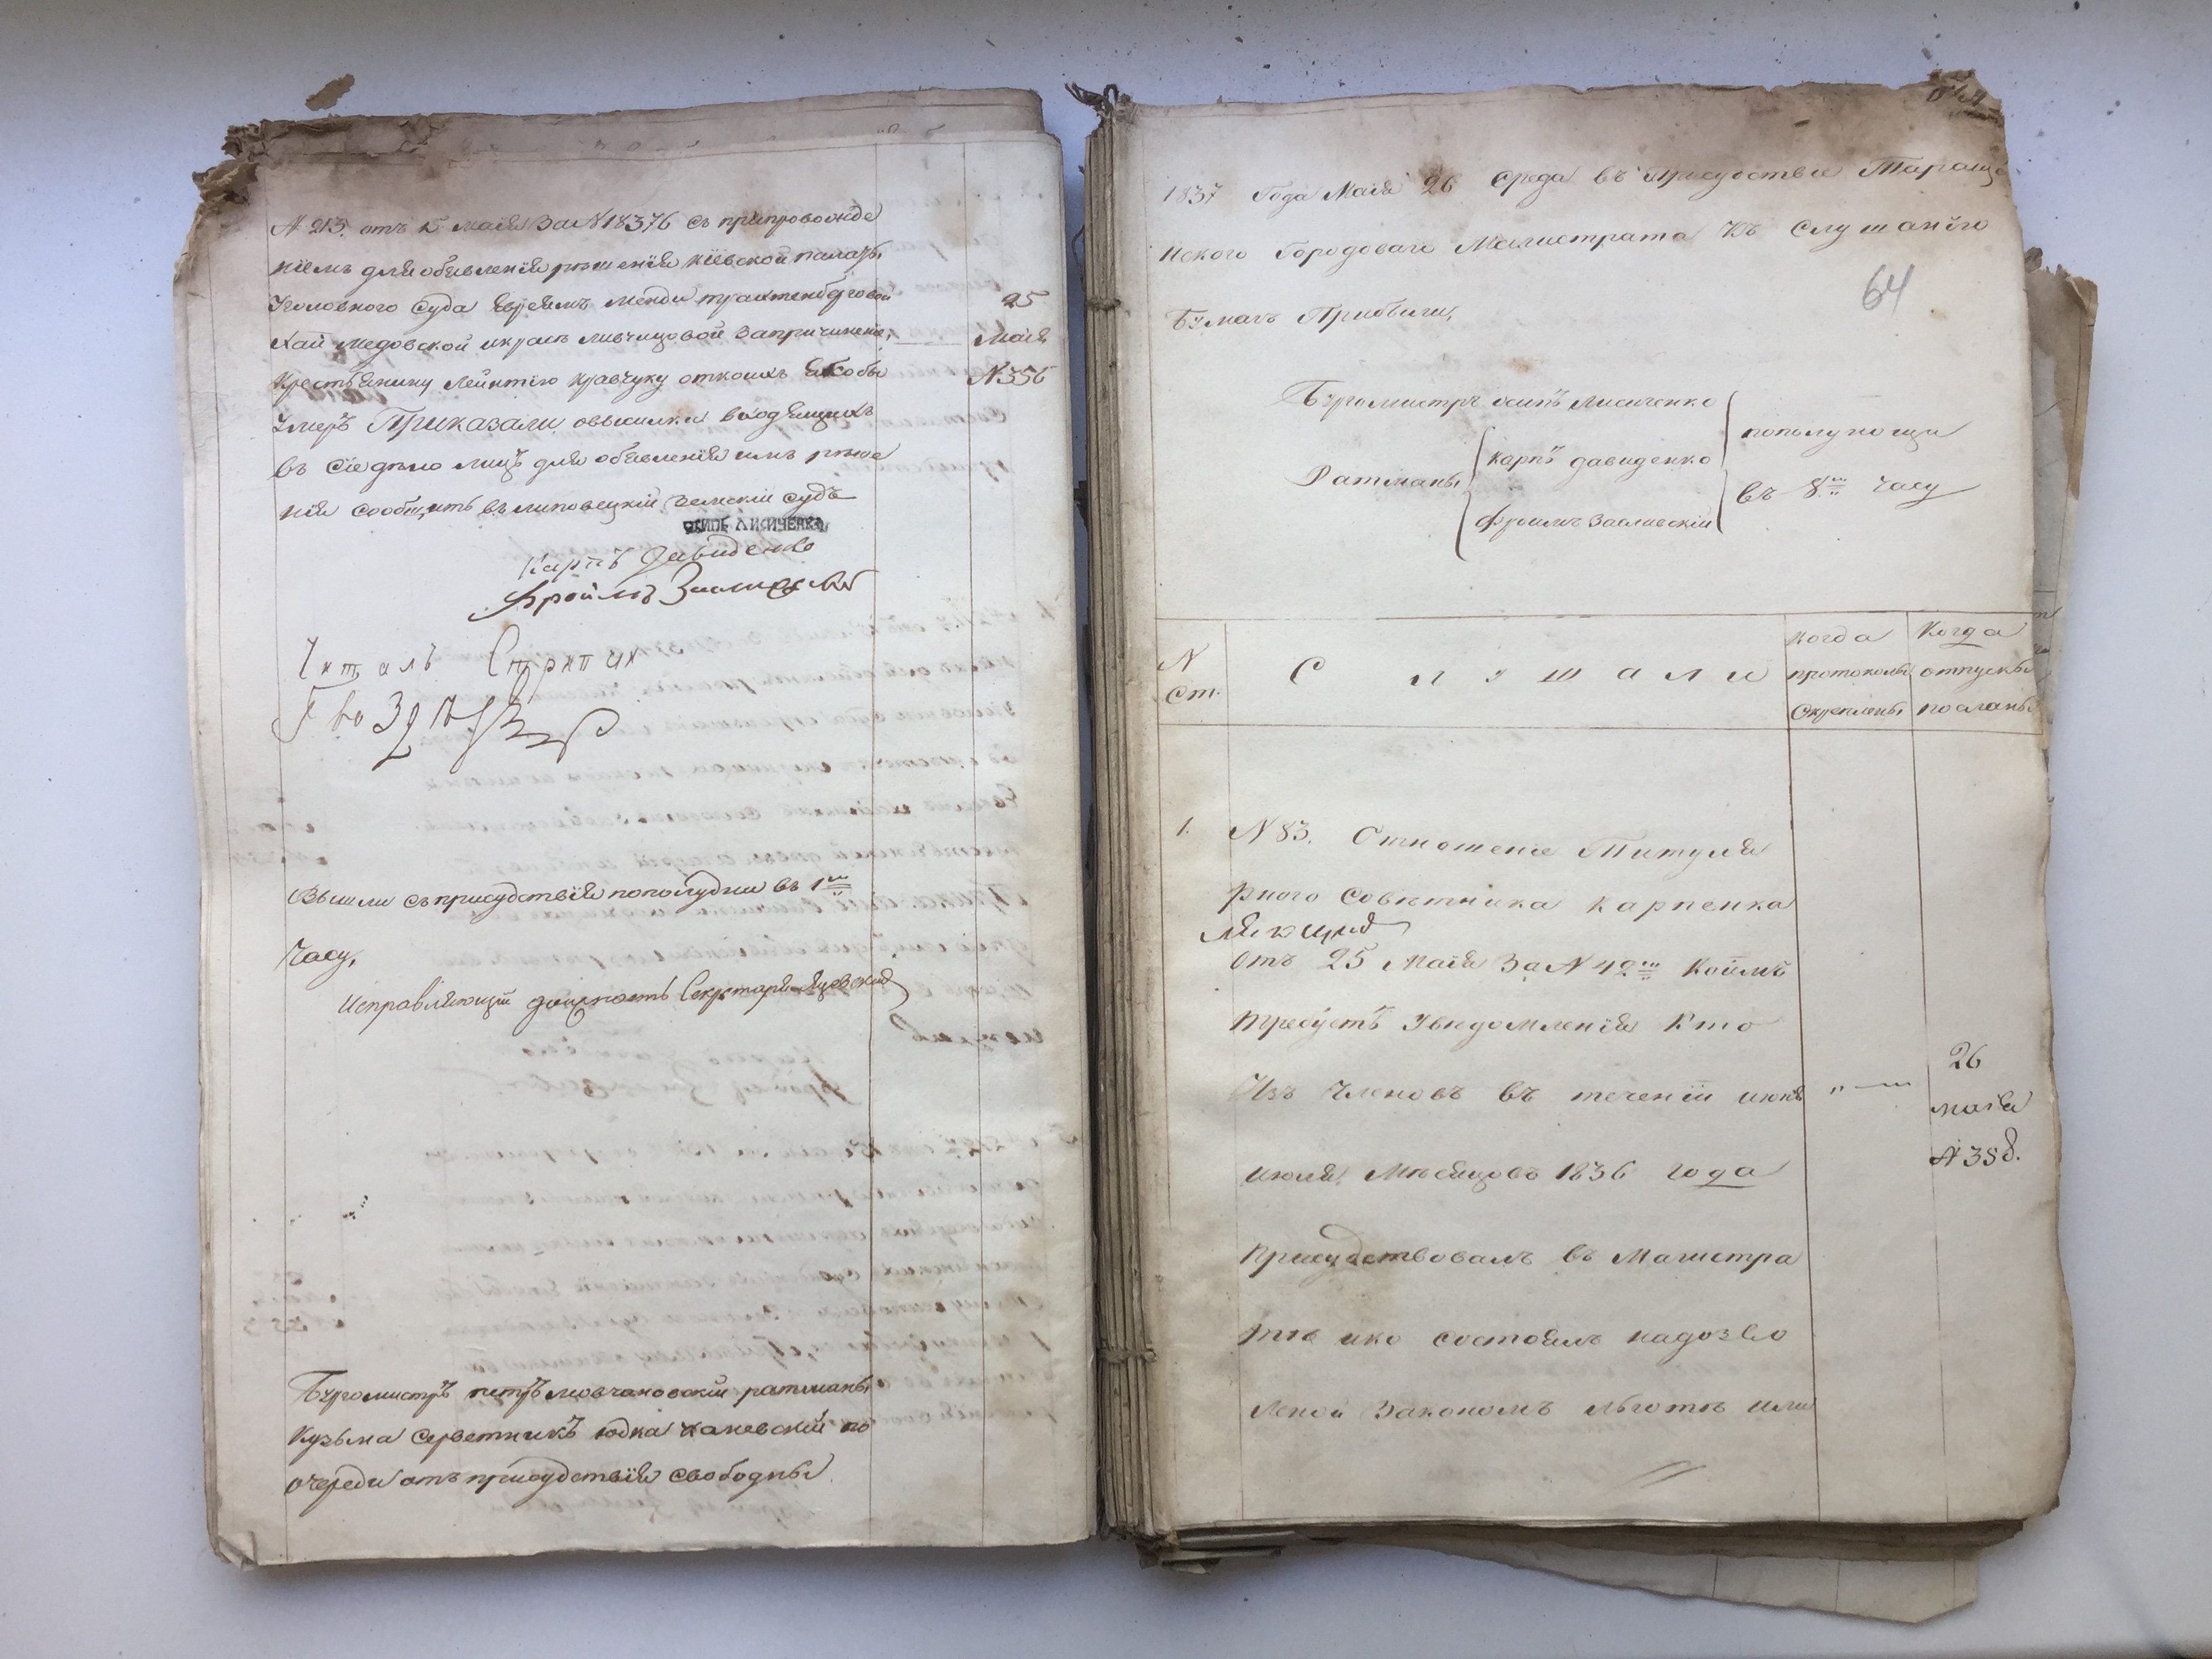 N 213. отъ 15 Маія За N 18376 съ припровожде
ніемъ для обявленія рѣшенія Кіевской палаты
Уголовного Суда Евреямъ Менди
Хаи Медовской Ливчицовой Запричиненіе
Крестьянину Леинтію Кравчуку Якобы
Умеръ Приказали овысылки входящихъ
въ Сіе дѣло лицъ для обявленія имъ рѣше
нія сообщить въ липовецкій Земскій судъ
25
Маія
N 356
ОСИПЪ ЛИСИЧЕНКО
Карпъ Давиденко
Фроимъ Заславскій
Читалъ Стряпчи
Гвозд
Вышли съ присудствія пополудни въ 1 м
Часу,
Исправляющій должность Секретаря Яцовскій
Бургомистръ петръ мовчановскій ратманы
Кузьма Серветникъ юдка Каневскій по
очереди отъ присудствія свободны
1837 Года Маія 26 Среда въ присудствіе Тараща
нского Городоваго Магистрата Къ Слушанію
64
Бумагъ Прибыли,
Бургомистръ осипъ лисиченко
Ратманы
Карпъ давиденко
Фроимъ Заславскій
пополуноши
въ 8 м часу
N Ст.
Слушали
Когда протоколы Скреплены
Когда отпуски посланы
1. N 83. Отношеніе Титуля
рного Совѣтника Карпенка
ляющій
отъ 25 Маія За N 42 м Коимъ
требуетъ Уведомленія Кто
Изъ Членовъ въ теченіи июня
июля Мѣсяцовъ 1836 года
присудствовалъ въ Магистра
тѣ ико состоялъ надозво
леной Закономъ льготѣ или
26
маія
N 358.